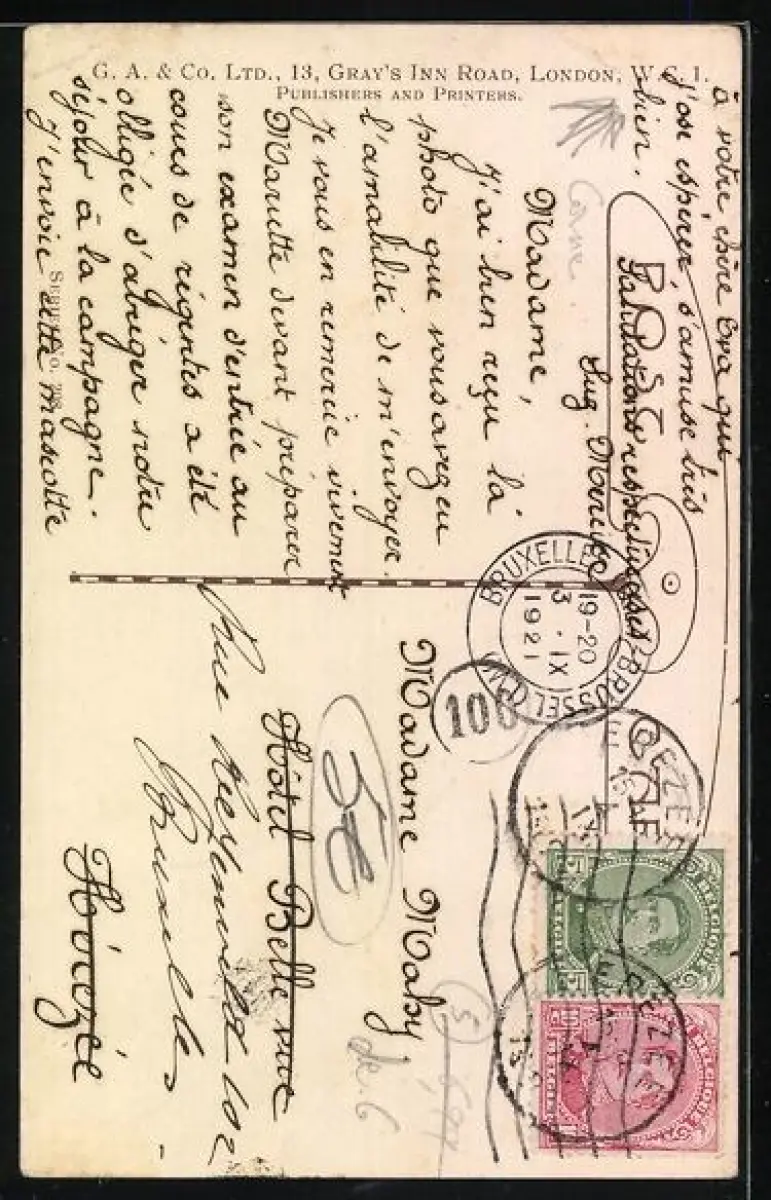 G. A. & Co. Ltd., 13, Gray's Inn Road, London, W.C. 1.
Publishers and Printers.
POST
Madame,
J'ai bien reçu la
photo que vous avez eu
l'amabilité de m'envoyer.
Je vous en remercie vivement
Mariette devant préparer
son examen d'entrée au
cours de régentes a été
obligée d'abréger notre
séjour à la campagne.
J'envoie cette mascotte
à votre chère Eva qui,
j'ose espérer, s'amuse très
bien.
Salutations respectueuses
Series No.
BRUXELLES
BRUSSEL
19-20
3 · IX
1921
100
Madame Maby,
Hôtel Belle vue
Rue
Bruxelles
5€
BELGIQUE
5
BELGIË
BELGIQUE
10
BELGIË